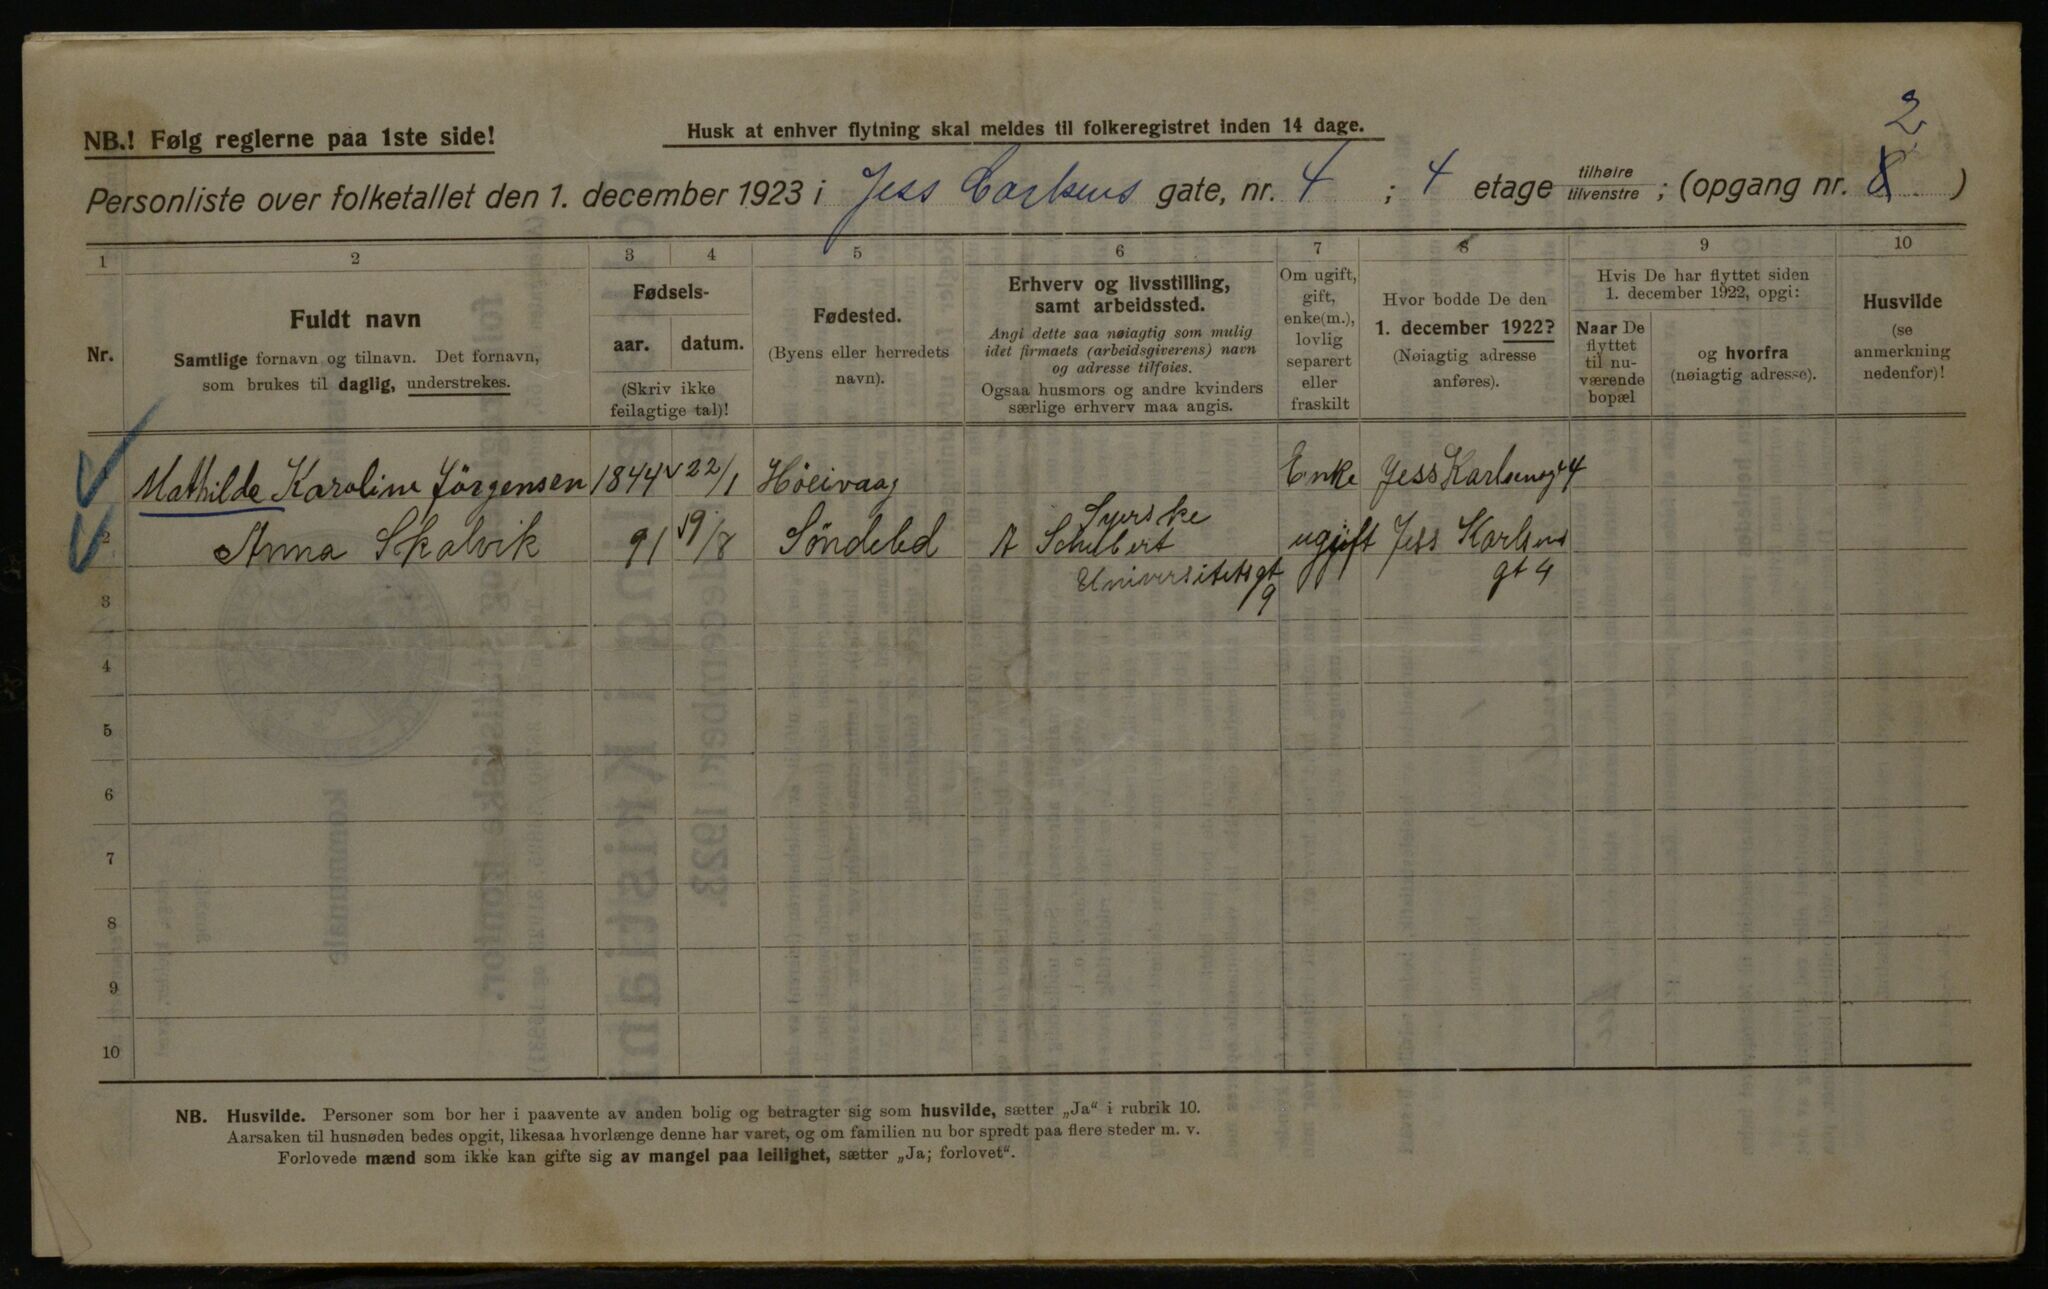 NB.! Følg reglerne paa 1ste side!
Husk at enhver flytning skal meldes til folkeregistret inden 14 dage.
2
Personliste over folketallet den 1. december 1923 i Jess Carlsens gate, nr. 4 ; 4 etage tilhøire tilvenstre ; (opgang nr. )
1 2 3 4 5 6 7 8 9 10
Nr.
Fuldt navn
Samtlige fornavn og tilnavn. Det fornavn,
som brukes til daglig, understrekes.
Fødsels-
aar. datum.
(Skriv ikke
feilagtige tal)!
Fødested.
(Byens eller herredets
navn).
Erhverv og livsstilling,
samt arbeidssted.
Angi dette saa nøiagtig som mulig
idet firmaets (arbeidsgiverens) navn
og adresse tilføies.
Ogsaa husmors og andre kvinders
særlige erhverv maa angis.
Om ugift,
gift,
enke(m.),
lovlig
separert
eller
fraskilt
Hvor bodde De den
1. december 1922?
(Nøiagtig adresse
anføres).
Hvis De har flyttet siden
1. december 1922, opgi:
Naar De
flyttet
til nu-
værende
bopæl
og hvorfra
(nøiagtig adresse).
Husvilde
(se
anmerkning
nedenfor)!
Mathilde Karoline Jörgensen 1844 22/1 Höeivaag Enke Jess Karlsensgt 4
2 Anna Skalvik 91 19/8 Söndeled Syerske
A Schubert
Universitetsgt
9
ugift Jess Karlsens
gt 4
3
4
5
6
7
8
9
10
NB. Husvilde. Personer som bor her i paavente av anden bolig og betragter sig som husvilde, sætter „Ja“ i rubrik 10.
Aarsaken til husnøden bedes opgit, likesaa hvorlænge denne har varet, og om familien nu bor spredt paa flere steder m. v.
Forlovede mænd som ikke kan gifte sig av mangel paa leilighet, sætter „Ja; forlovet“.